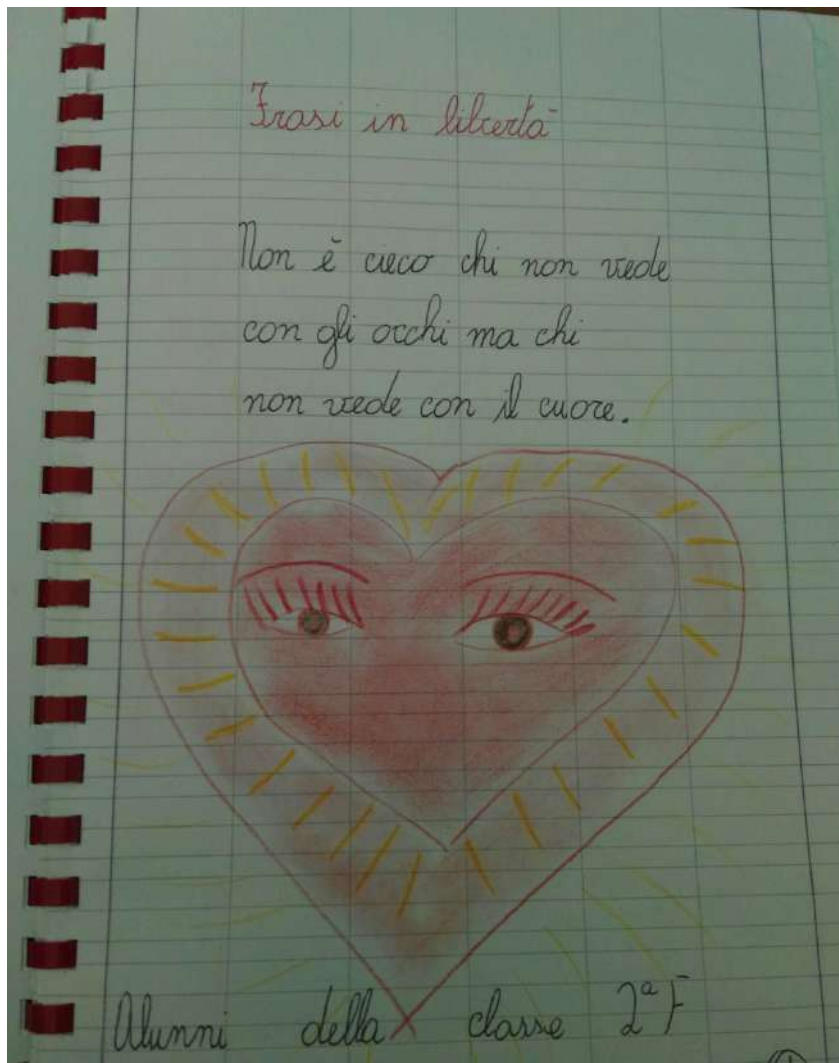 Frasi in libertà
Non è cieco chi non vede
con gli occhi ma chi
non vede con il cuore.
Alunni della classe 2ª F